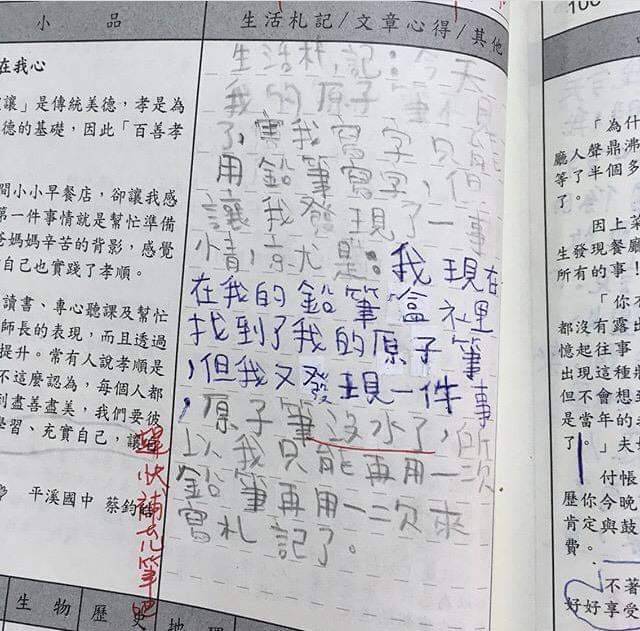 小 品
在我心
讓」是傳統美德，孝是為
德的基礎，因此「百善孝
間小小早餐店，卻讓我感
第一件事情就是幫忙準備
爸媽媽辛苦的背影，感覺
自己也實踐了孝順。
讀書、專心聽課及幫忙
師長的表現，而且透過
提升。常有人說孝順是
不這麼認為，每個人都
到盡善盡美，我們要彼
學習、充實自己，讓
平溪國中 蔡鈞
趕快補充筆吧
生物 歷史 地理
生活札記/文章心得/其他
生活札記：今天
我的原子筆不見
了，害我寫字只能
用鉛筆寫字，但
讓我發現了一事
情，就是：我現在
在我的鉛筆盒裡
找到了我的原子筆
，但我又發現一件事
，原子筆沒水了，所
以我只能再用一次
鉛筆再用一次來
寫札記了。
100
「為什
廳人聲鼎沸
等了半個多
了。
因上菜
生發現餐廳
所有的事！
「你
都沒有露出
憶起往事
出現這種
但不會想到
是當年的
了。」夫
付帳
歷你今晚
肯定與鼓
費。
不著
好好享受